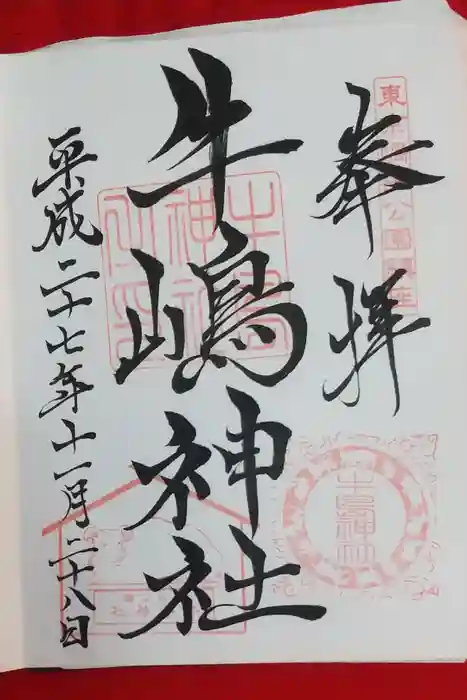 奉拝
牛嶋神社
平成二十七年十一月二十八日
牛嶋神社